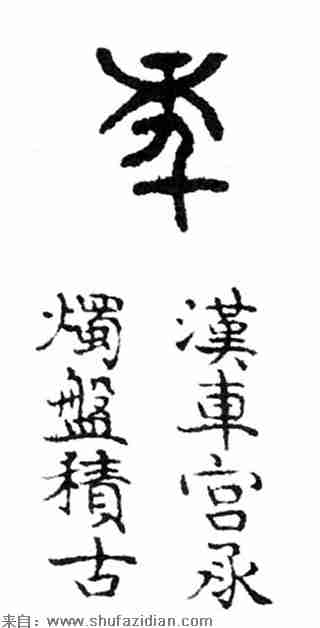 年
漢車宫承
燭盤積古
来自：www.shufazidian.com